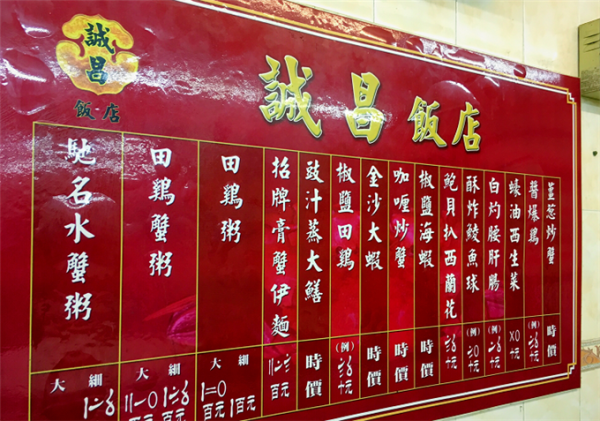 誠昌
飯店
誠昌飯店
薑葱炒蟹
時價
醬爆鷄
(例)
蠔油西生菜
白灼腰肝腸
(例)
酥炸鯪魚球
(例)
鮑貝扒西蘭花
椒鹽海蝦
時價
咖喱炒蟹
時價
金沙大蝦
時價
椒鹽田鷄
(例)
豉汁蒸大鱔
時價
招牌膏蟹伊麵
百元
田鷄粥
大 細
百元
田鷄蟹粥
大 細
百元
馳名水蟹粥
大 細